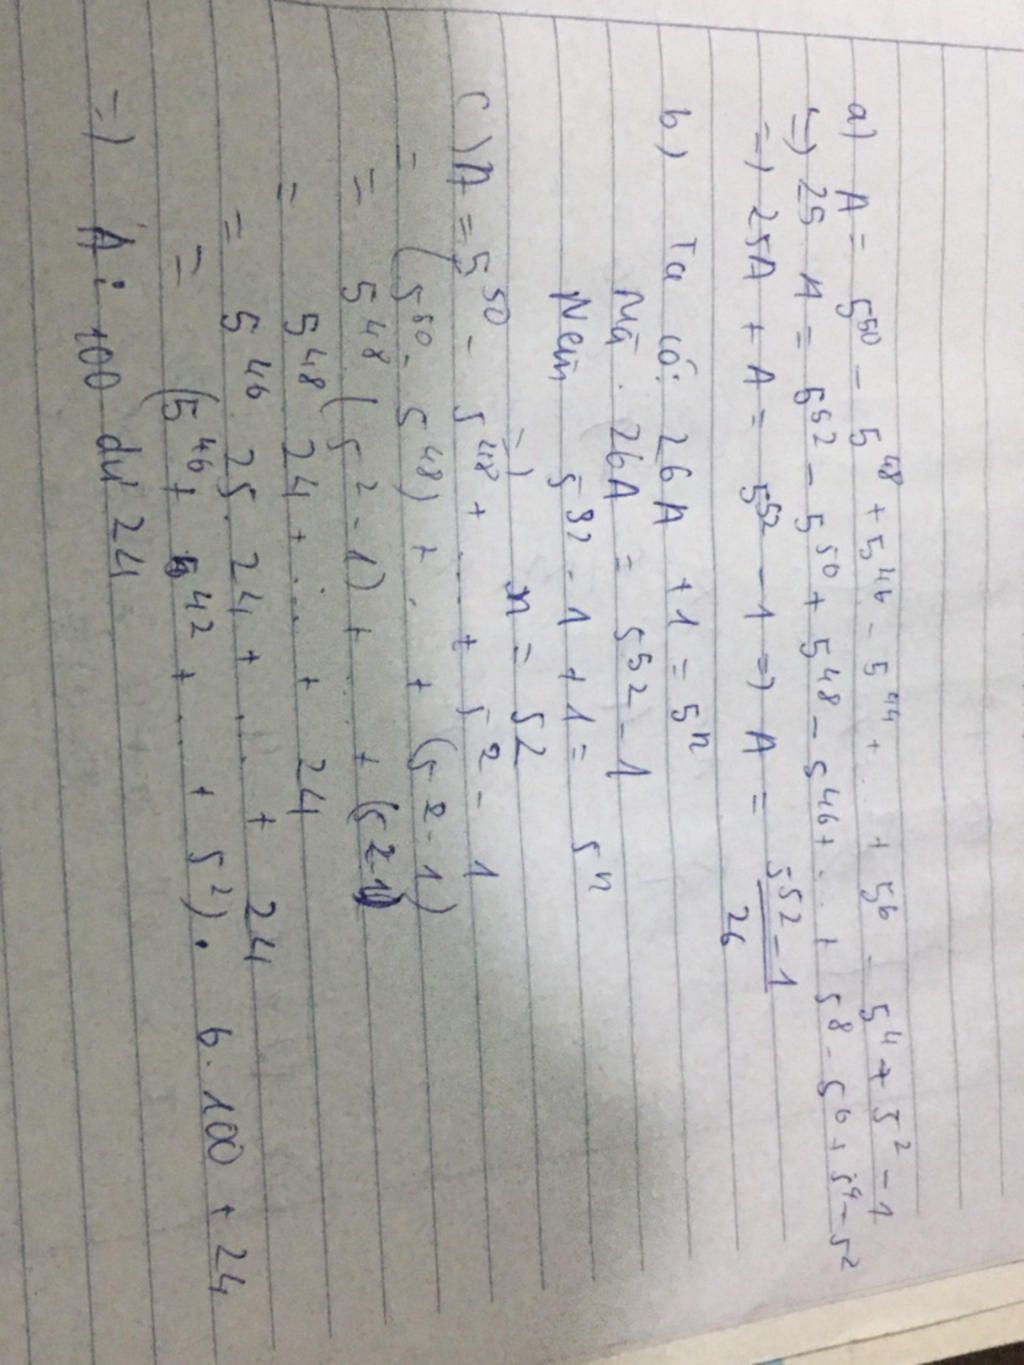 a) A = 5^50 - 5^48 + 5^46 - 5^44 + . . + 5^6 - 5^4 + 5^2 - 1
=) 25 A = 5^52 - 5^50 + 5^48 - 5^46 + . . + 5^8 - 5^6 + 5^4 - 5^2
=) 25A + A = 5^52 - 1 =) A = (5^52 - 1)/26
b) Ta có: 26A + 1 = 5^n
Mà . 26A = 5^52 - 1
Nên 5^32 - 1 + 1 = 5^n
=) n = 52
c) A = 5^50 - 5^48 + . . . . + 5^2 - 1
= (5^50 - 5^48) + . . + (5^2 - 1)
= 5^48 (5^2 - 1) + . . + (5^2 - 1)
= 5^48 24 + . . . + 24
= 5^46 . 25 . 24 + . . . + 24
= (5^46 + 5^42 + . . + 5^2) . 6 . 100 + 24
=) A : 100 dư 24